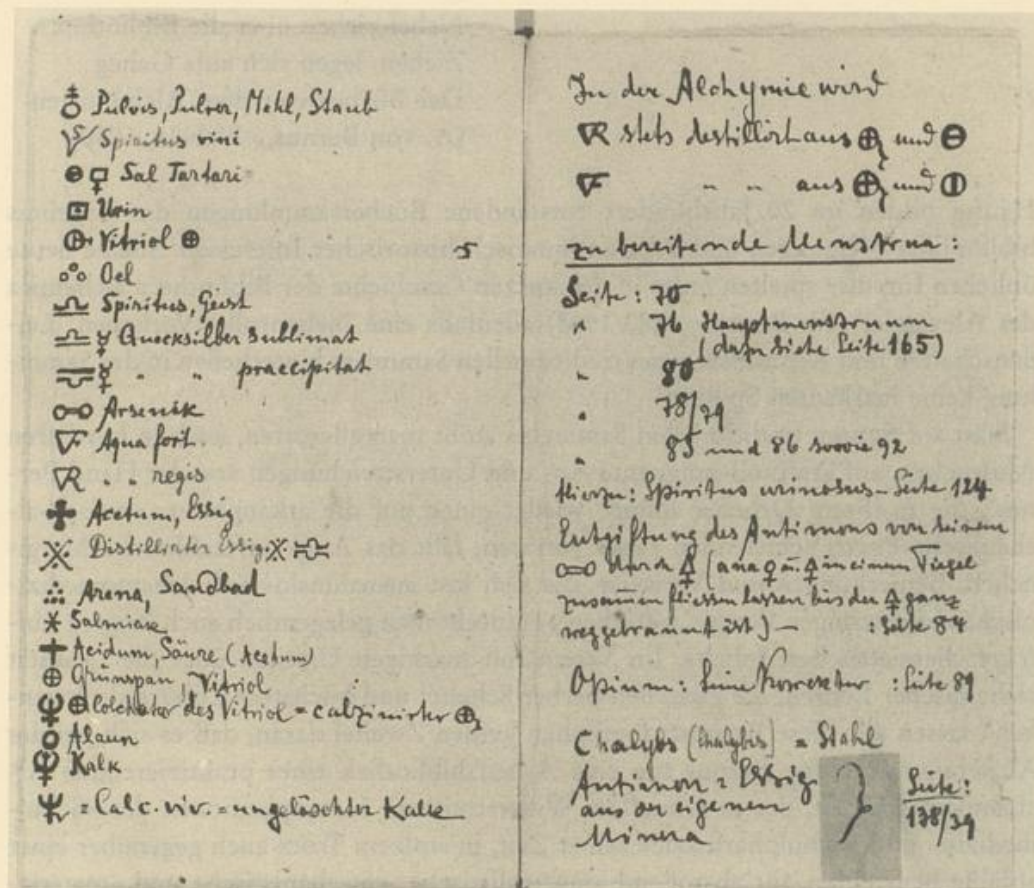 Pulvis, Pulver, Mehl, Staub
Spiritus vini
Sal Tartari
Urin
Vitriol
Oel
Spiritus, Geist
Quecksilber sublimat
" " praecipitat
Arsenik
Aqua fort.
" " regis
Acetum, Essig
Distillirter Essig.
Arena, Sandbad
Salmiak
Acidum, Säure (Acetum)
Grünspan, Vitriol
Colchotar des Vitriol = calzinirter
Alaun
Kalk
= Calc. viv. = ungelöschter Kalk
In der Alchymie wird
stets destillirt aus und
" " aus und
zu bereitende Menstrua:
Seite: 70
" 76 Hauptmenstruum
(dazu siehe Seite 165)
" 80
" 78/79
" 85 und 86 sowie 92
Hierzu: Spiritus urinosus - Seite 124
Entgiftung des Antimons von seinem
durch (ana und in einem Tiegel
zusammen fliessen lassen bis der ganz
weggebrannt ist) — : Seite 84
Opium: Seine Korrektur : Seite 89
Chalybs (chalybis) = Stahl
= Essig
aus der eigenen
Minera
Seite:
138/39